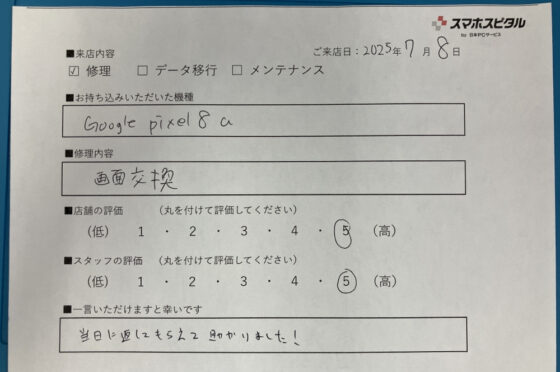 スマホスピタル
by 日本PCサービス
■来店内容 ご来店日：2025年7月8日
☑ 修理 □ データ移行 □ メンテナンス
■お持ち込みいただいた機種
Google pixel 8 a
■修理内容
画面交換
■店舗の評価 （丸を付けて評価してください）
（低） 1 ・ 2 ・ 3 ・ 4 ・ 5 （高）
■スタッフの評価 （丸を付けて評価してください）
（低） 1 ・ 2 ・ 3 ・ 4 ・ 5 （高）
■一言いただけますと幸いです
当日に直してもらえて助かりました！